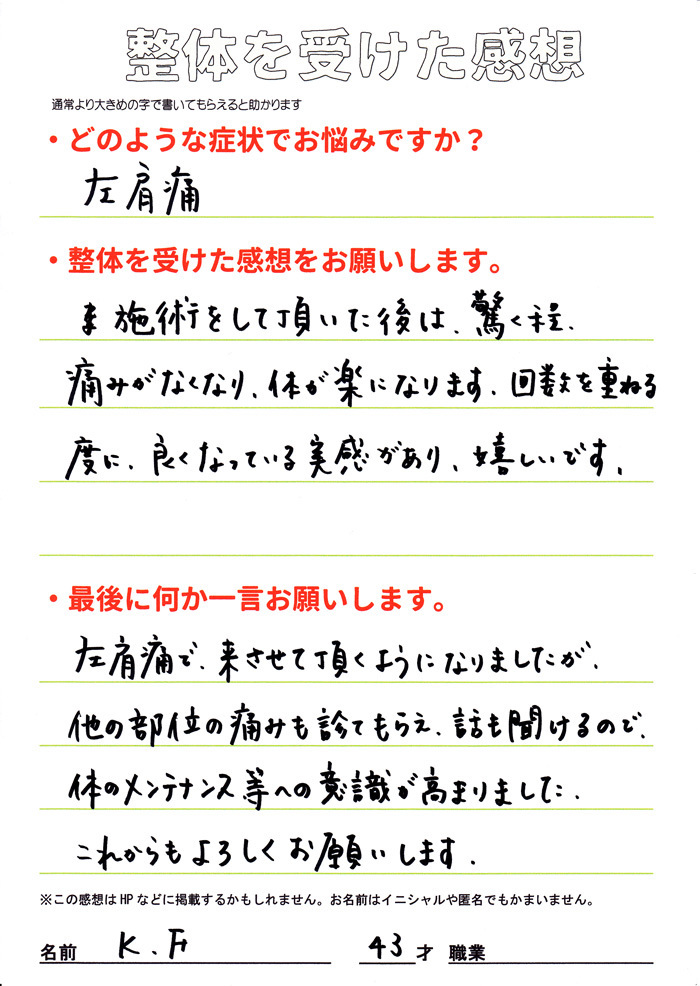 整体を受けた感想
通常より大きめの字で書いてもらえると助かります
・どのような症状でお悩みですか？
左肩痛
・整体を受けた感想をお願いします。
施術をして頂いた後は、驚く程、
痛みがなくなり、体が楽になります。回数を重ねる
度に、良くなっている実感があり、嬉しいです。
・最後に何か一言お願いします。
左肩痛で、来させて頂くようになりましたが、
他の部位の痛みも診てもらえ、話も聞けるので、
体のメンテナンス等への意識が高まりました。
これからもよろしくお願いします。
※この感想はHPなどに掲載するかもしれません。お名前はイニシャルや匿名でもかまいません。
名前 K.F 43才 職業